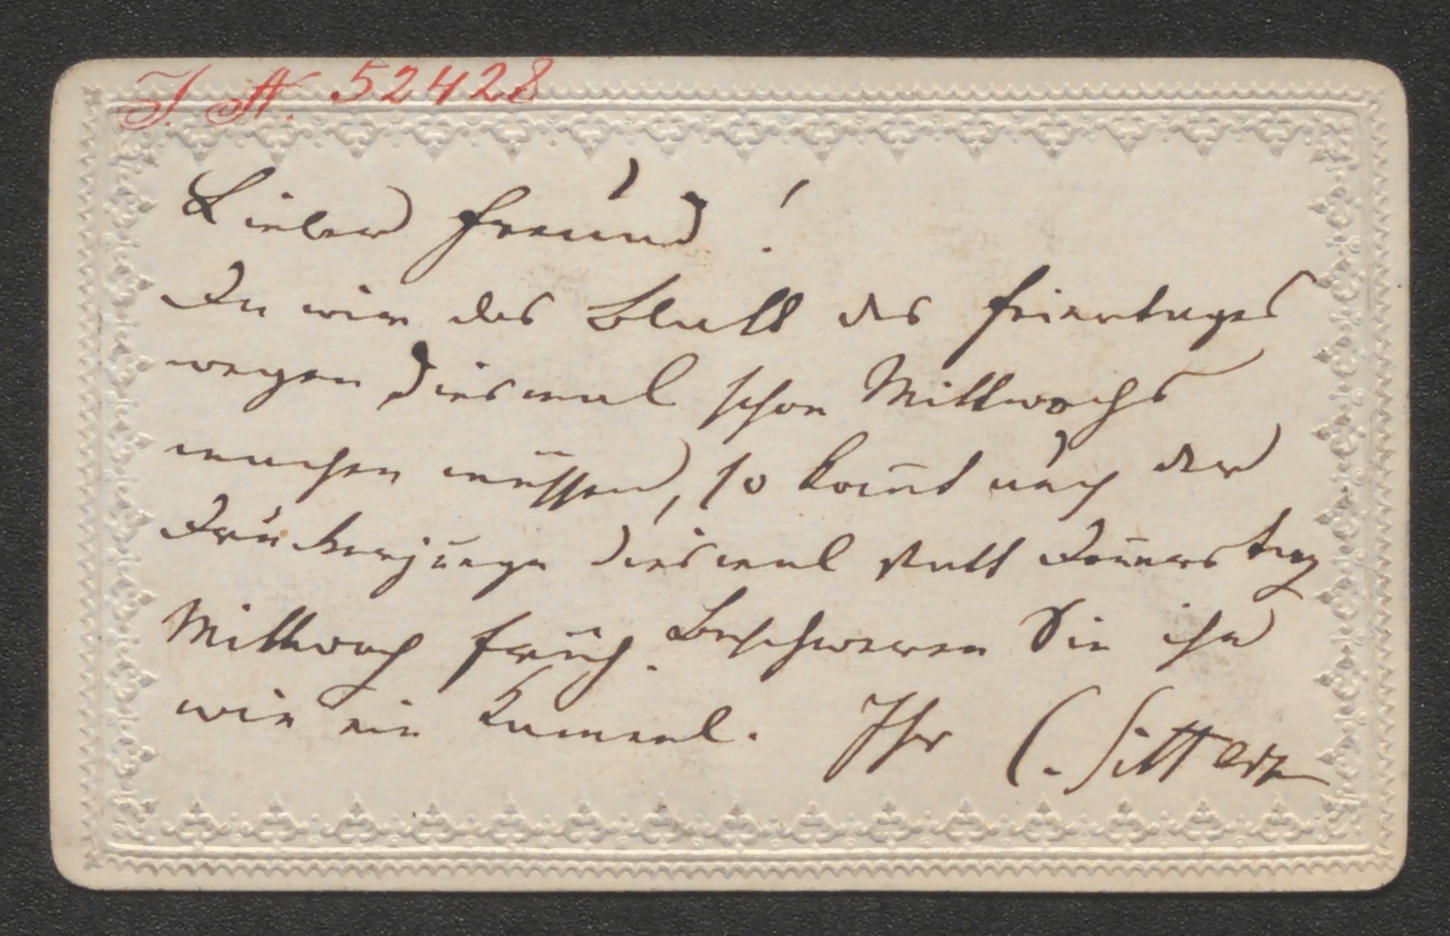 I. N. 52428
Lieber Freund!
Da wir das Blatt des Feiertages
wegen diesmal schon Mittwochs
machen müssen, so kom̅t auch der
Druckerjunge diesmal statt Don̅erstag
Mittwoch früh. Beschweren Sie ihn
wie ein Kameel. Ihr C. Sitter